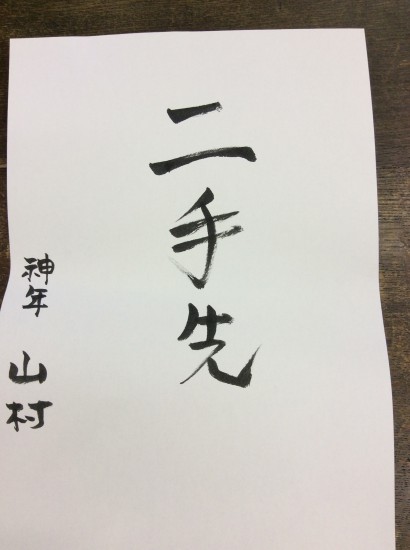 二手先
神年 山村